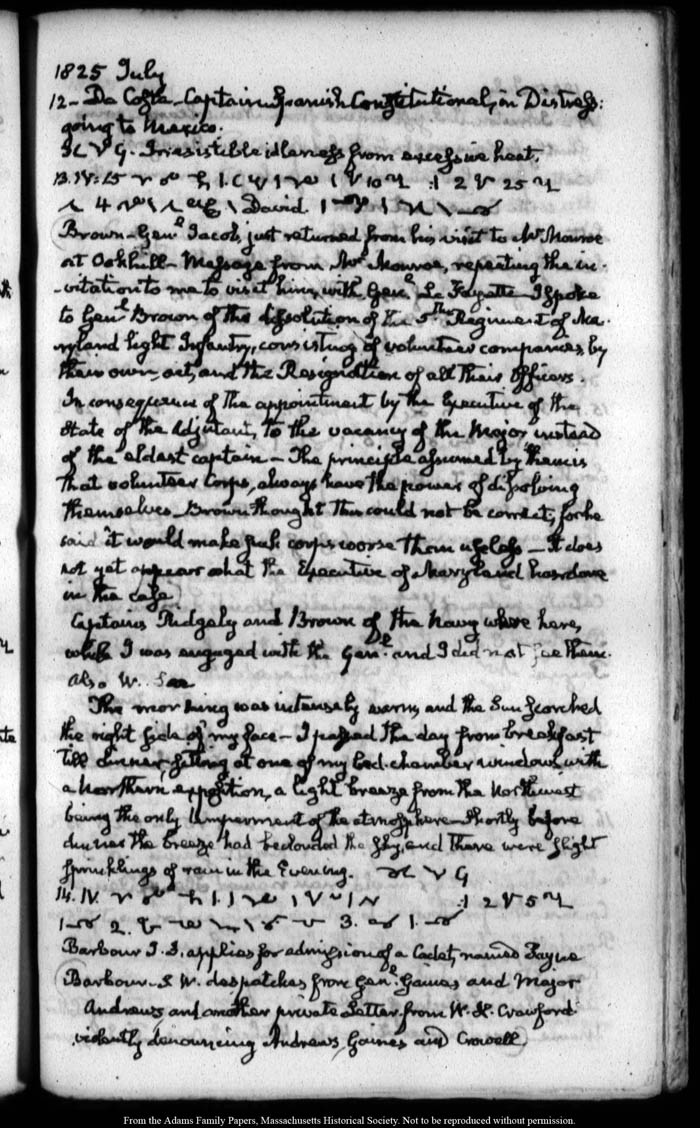 1825 July
12 – Da Costa – Captain Spanish Constitutional, in Distress:
going to Mexico.
V G. Irresistible idleness from excessive heat.
13. IV: 15 10 2 25
4 David
Brown – Genl Jacob, just returned from his visit to Mr Monroe
at Oakhill – Message from Mr Monroe, repeating the in-
-vitation to me to visit him, with Genl La Fayette – I spoke
to Genl Brown of the dissolution of the 5th Regiment of Ma-
ryland light Infantry, consisting of volunteer companies, by
their own act, and the Resignation of all their Officers.
In consequence of the appointment by the Executive of the
State of the Adjutant, to the vacancy of the Major instead
of the eldest captain – The principle assumed by them is
that volunteer Corps, always have the power of dissolving
themselves – Brown thought this could not be correct; for he
said it would make such corps worse than useless – It does
not yet appear what the Executive of Maryland has done
in the case.
Captains Ridgely and Brown of the Navy where here,
while I was engaged with the Genl and I did not see them.
also W.
The morning was intensely warm, and the Sun scorched
the right side of my face – I passed the day from breakfast
till dinner sitting at one of my bed-chamber windows, with
a Northern exposition, a light breeze from the Northwest
being the only temperment of the atmosphere – Shortly before
dinner the breeze had beclouded the sky, and there were slight
sprinklings of rain in the Evening. V G
14. IV. 2 5
2. 3. 1.
Barbour J. S. applies for admission of a Cadet, named Payne
Barbour – S. W. despatches from Genl Gaines and Major
Andrews and another private Letter from W. H. Crawford
violently denouncing Andrews, Gaines and Crowell
From the Adams Family Papers, Massachusetts Historical Society. Not to be reproduced without permission.